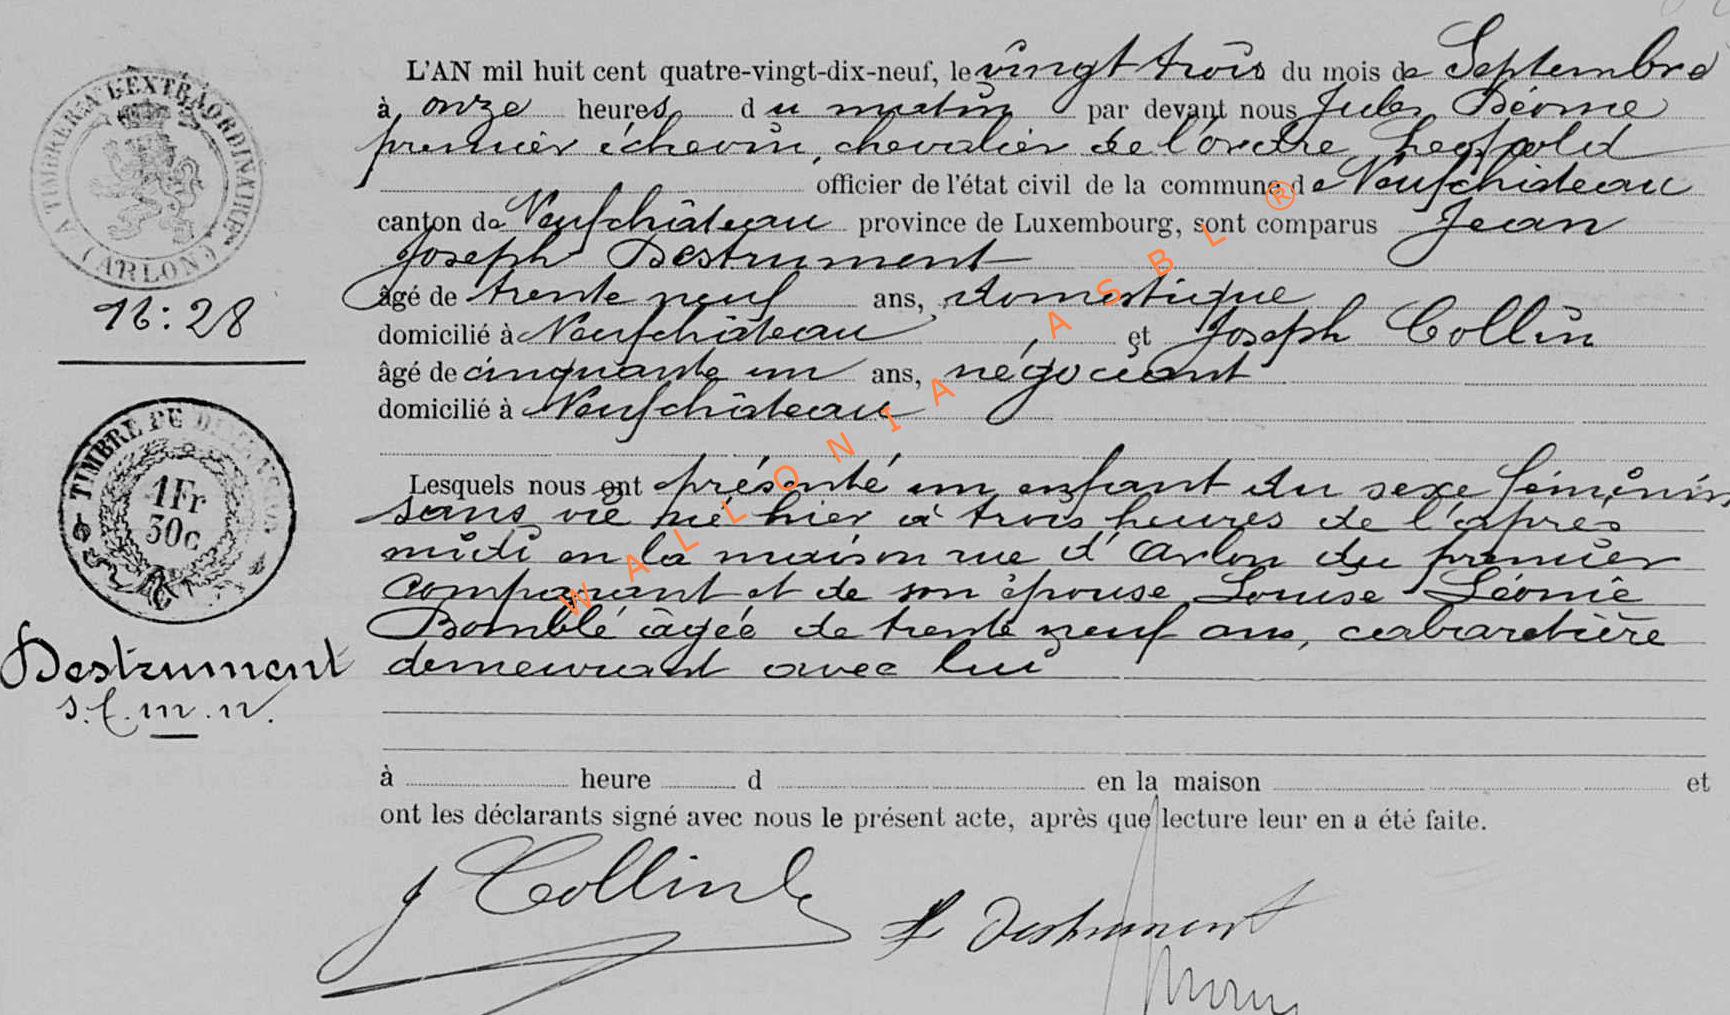 L'AN mil huit cent quatre-vingt-dix-neuf, le vingt trois du mois de Septembre
à onze heures du matin par devant nous Jules Déome
premier échevin, chevalier de l'ordre Léopold
officier de l'état civil de la commune de Neufchâteau
canton de Neufchâteau province de Luxembourg, sont comparus Jean
Joseph Destrument
âgé de trente neuf ans, domestique
domicilié à Neufchâteau et Joseph Collin
âgé de cinquante un ans, négociant
domicilié à Neufchâteau
Lesquels nous ont présenté un enfant du sexe féminin
sans vie né hier à trois heures de l'après
midi en la maison rue d'Arlon du premier
comparant et de son épouse Louise Léonie
Bomblé âgée de trente neuf ans, cabaretière
demeurant avec lui
à heure d en la maison et
ont les déclarants signé avec nous le présent acte, après que lecture leur en a été faite.
J Collin
Destrument
A TIMBRER A L'EXTRAORDINAIRE
(ARLON)
16:28
TIMBRE DE DIMENSION
1Fr
50c
Destrument
s.f.m.n.
WALLONIA ASBL ®